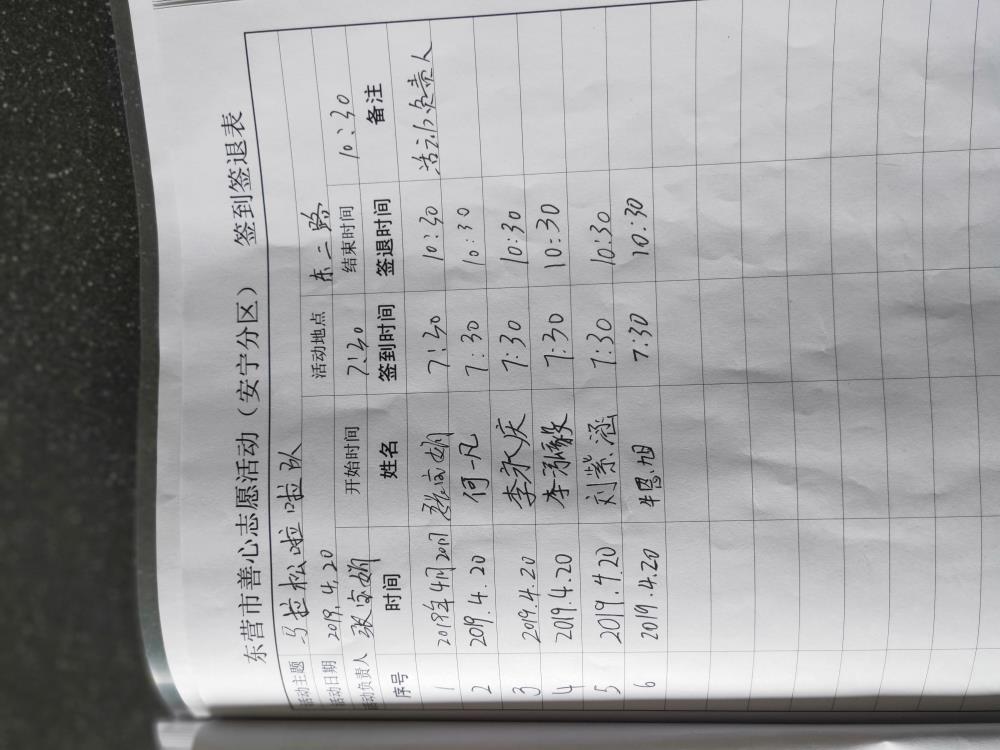 东营市善心志愿活动（安宁分区） 签到签退表
活动主题 马拉松啦啦队
活动日期 2019.4.20 活动地点 东二路
活动负责人 开始时间 7:30 结束时间 10:30
序号 时间 姓名 签到时间 签退时间 备注
1 2019年4月20日 7:30 10:30 活动负责人
2 2019.4.20 何一凡 7:30 10:30
3 2019.4.20 李永庆 7:30 10:30
4 2019.4.20 李 7:30 10:30
5 2019.4.20 刘紫涵 7:30 10:30
6 2019.4.20 旭 7:30 10:30